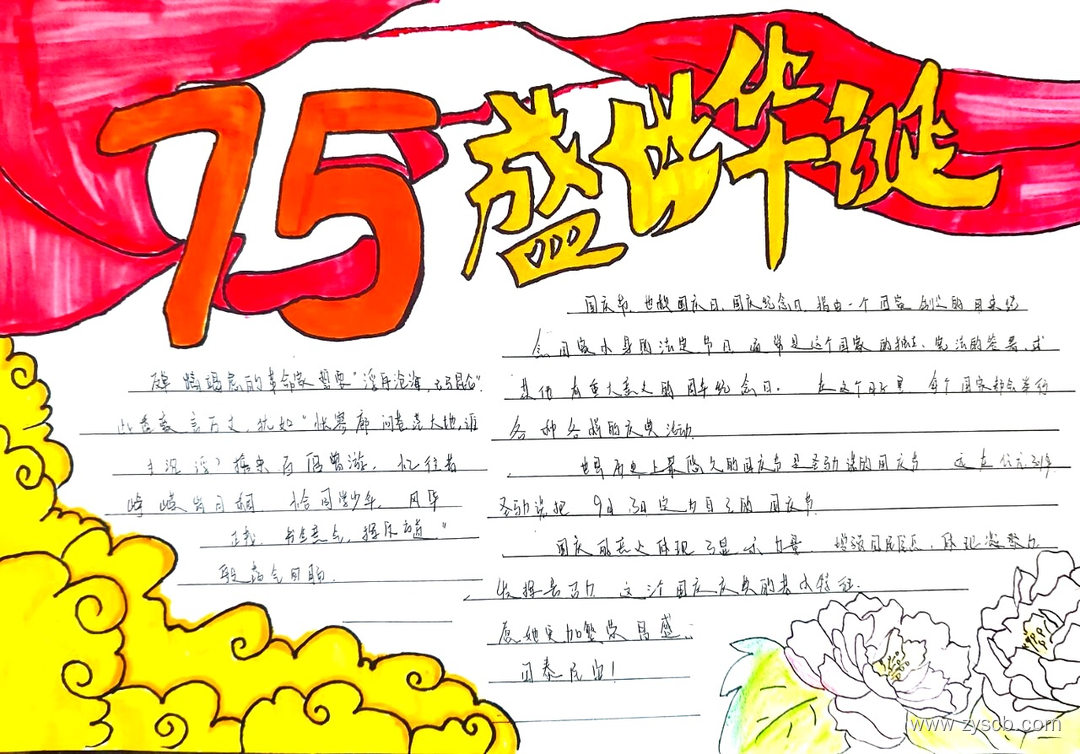 75 盛世华诞
国庆节,也被国庆日、国庆纪念日,指由一个国家制定的用来纪
念国家本身的法定节日 通常是这个国家的独立、宪法的签署、或
其他有重大意义的周年纪念日。 在这个日里 每个国家都会举行
各种各样的庆典活动.
世界历史上最悠久的国庆节是圣马力诺的国庆节 这在
圣马力诺把 9月3日定为自己的国庆节.
国庆的意义体现 显示力量、增强国民信心,体现凝聚力
发挥号召力 这个国庆庆典的基本特征.
愿她更加繁荣昌盛.
国泰民安!
的革命家
此 言 犹如"怅寥廓 问苍茫大地,谁
主沉浮?携来百侣曾游,忆往昔
峥嵘岁月稠 恰同学少年,风华
正茂 书生意气,挥斥方遒"
www.zyscb.com